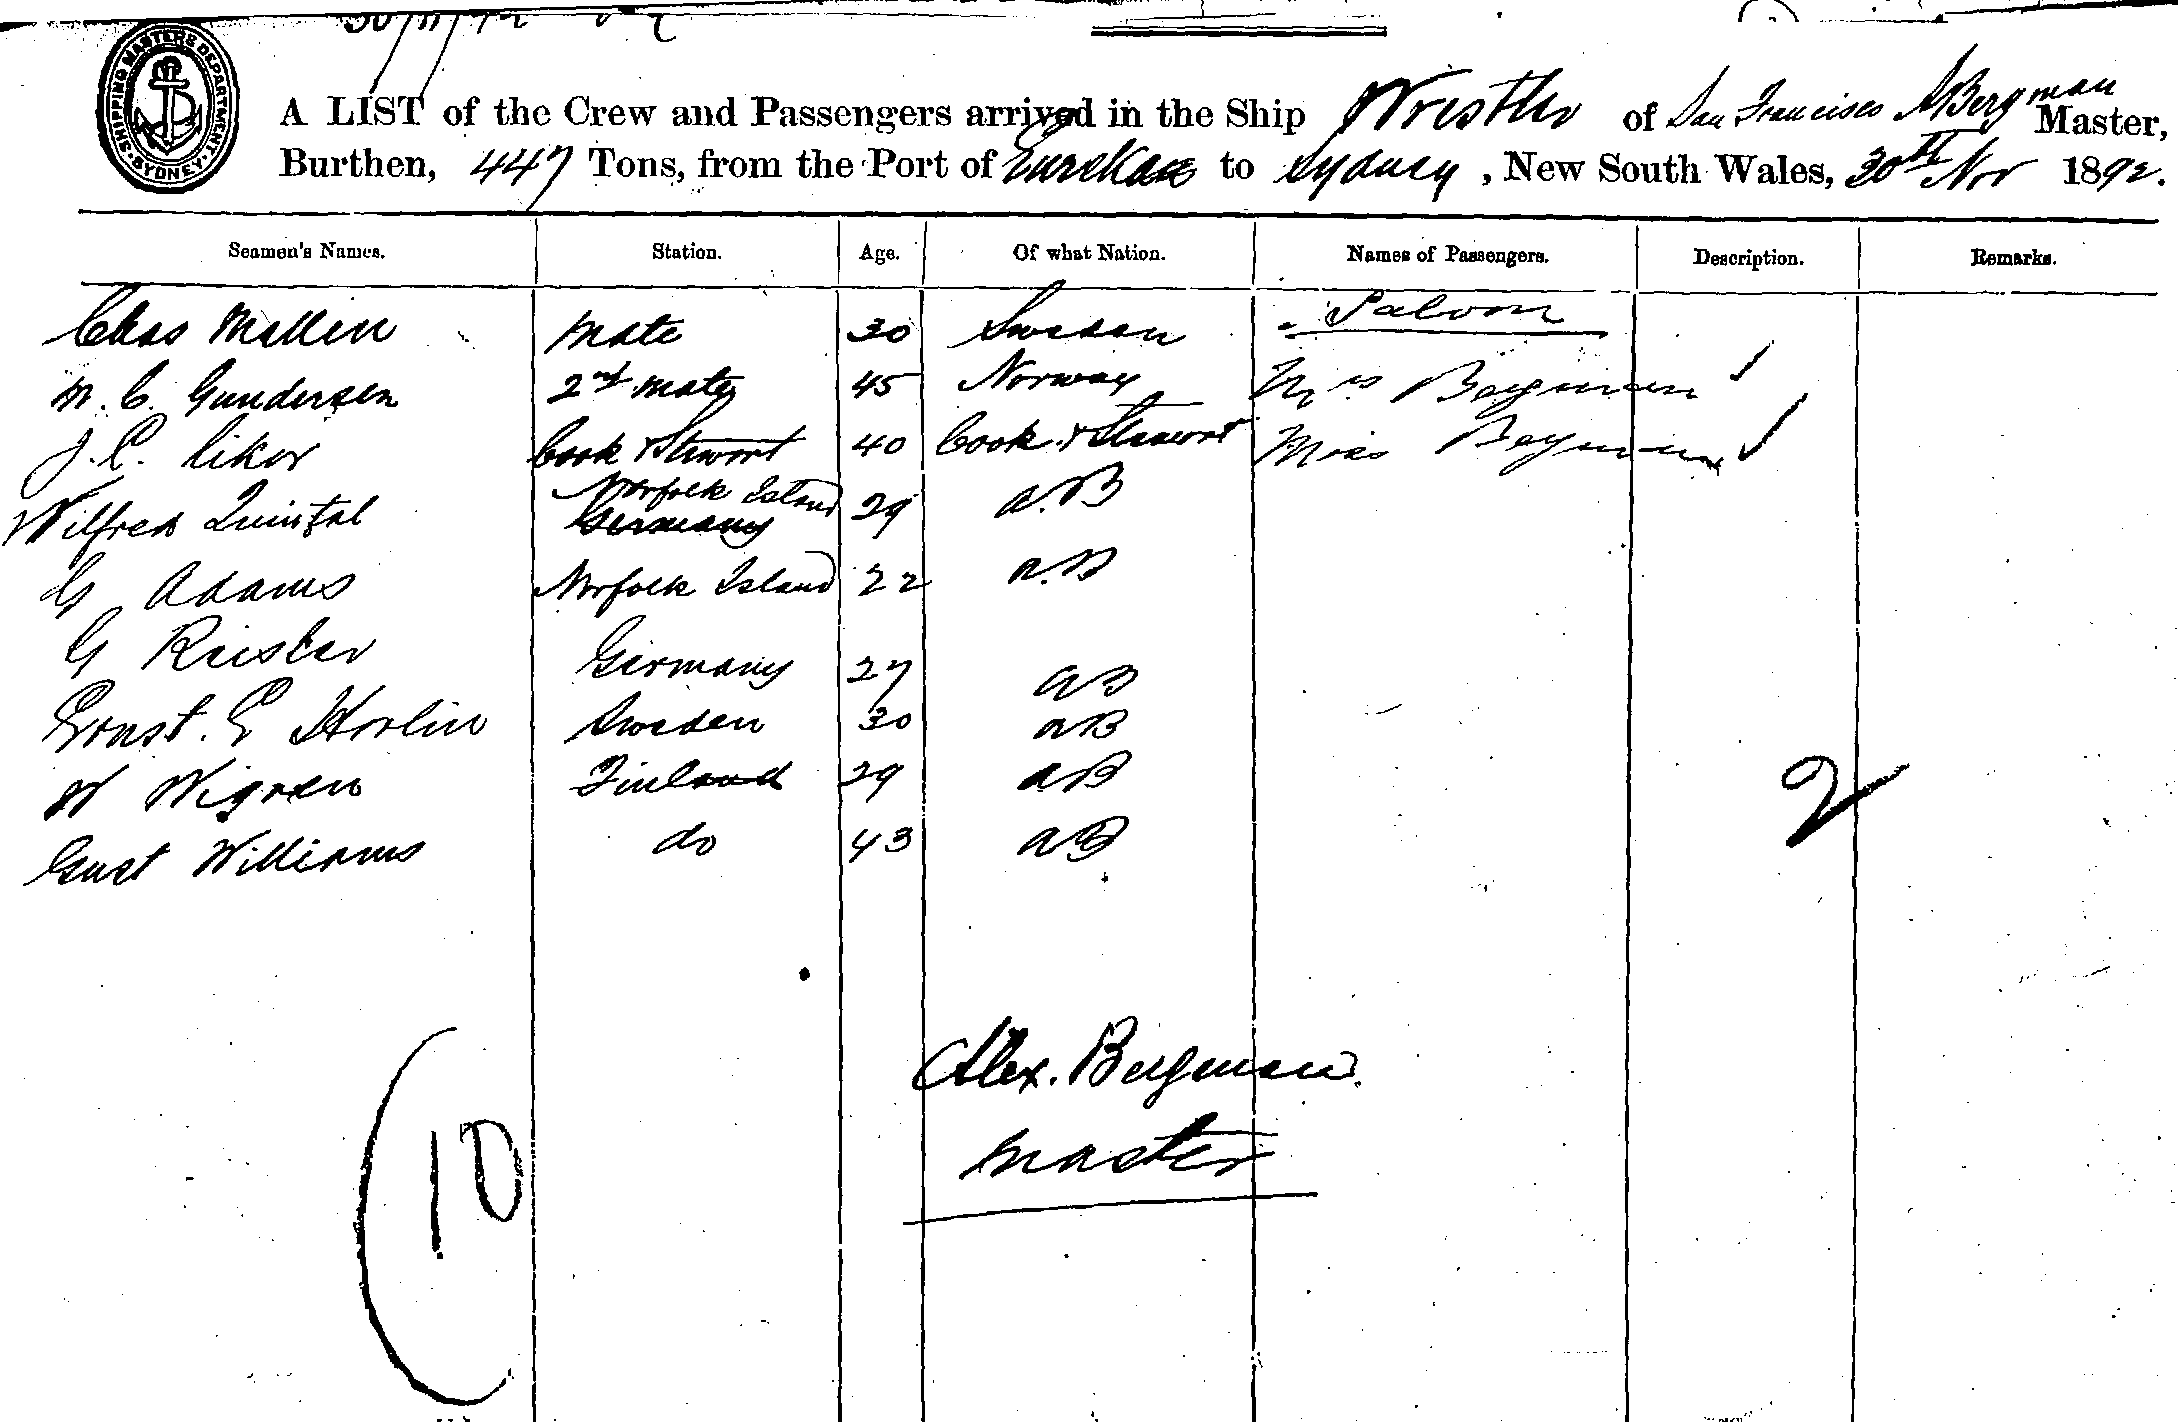 30/11/92
SHIPPING MASTERS DEPARTMENT SYDNEY
A LIST of the Crew and Passengers arrived in the Ship Wrestler of San Francisco A Bergman Master,
Burthen, 447 Tons, from the Port of Eureka to Sydney, New South Wales, 30th Nov 1892.
Seamen's Names. Station. Age. Of what Nation. Names of Passengers. Description. Remarks.
Saloon
Chas Mallin Mate 30 Sweden
M. C. Gundersen 2nd Mate 45 Norway Mrs Bergman
J. C. Cook & Stewort 40 Cook & Stewort Miss Bergman
Norfolk Island
Wilfred Quintal Germany 29 A.B
G Adams Norfolk Island 22 A.B
G Reister Germany 27 AB
Ernst. E Horlin Sweden 30 AB
W Wigren Finland 29 AB
2
Gust Williams do 43 AB
Alex. Bergman.
Master
10